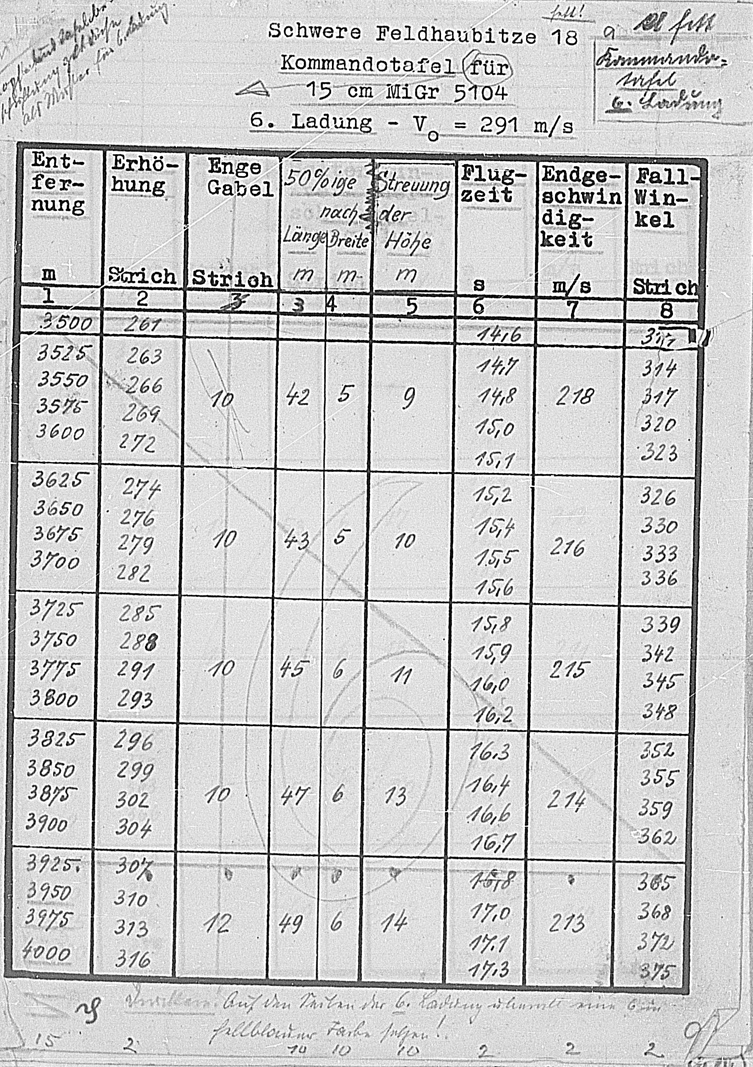 fett!
Schwere Feldhaubitze 18
Kommandotafel für
15 cm MiGr 5104
6. Ladung - Vo = 291 m/s
fett
Kommando-
tafel
6. Ladung
Ent-
fer-
nung
m
Erhö-
hung
Strich
Enge
Gabel
Strich
50%ige Streuung
nach der
Länge Breite Höhe
m m m
Flug-
zeit
s
Endge-
schwin
dig-
keit
m/s
Fall-
Win-
kel
Strich
1 2 3 3 4 5 6 7 8
3500 261 14,6
3525 263 14,7 314
3550 266 14,8 317
3575 269 15,0 320
3600 272 15,1 323
10 42 5 9 218
3625 274 15,2 326
3650 276 15,4 330
3675 279 15,5 333
3700 282 15,6 336
10 43 5 10 216
3725 285 15,8 339
3750 288 15,9 342
3775 291 16,0 345
3800 293 16,2 348
10 45 6 11 215
3825 296 16,3 352
3850 299 16,4 355
3875 302 16,6 359
3900 304 16,7 362
10 47 6 13 214
3925 307 16,8 365
3950 310 17,0 368
3975 313 17,1 372
4000 316 17,3 375
12 49 6 14 213
Auf den Seiten der 6. Ladung überall eine 6 in
hellblauer Farbe setzen!
15 2 10 10 2 2 2